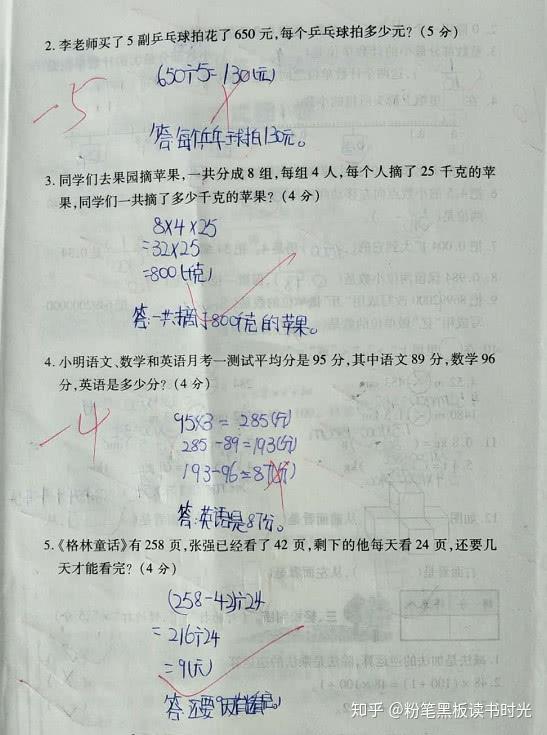 2. 李老师买了 5 副乒乓球拍花了 650 元,每个乒乓球拍多少元? (5 分)
650÷5=130(元)
-5
答:每个乒乓球拍130元。
3. 同学们去果园摘苹果,一共分成 8 组,每组 4 人,每个人摘了 25 千克的苹
果,同学们一共摘了多少千克的苹果? (4 分)
8×4×25
=32×25
=800(千克)
答:一共摘了800千克的苹果。
4. 小明语文、数学和英语月考一测试平均分是 95 分,其中语文 89 分,数学 96
分,英语是多少分? (4 分)
-4
95×3=285(分)
285-89=193(分)
193-96=87(分)
答:英语是87分。
5.《格林童话》有 258 页,张强已经看了 42 页,剩下的他每天看 24 页,还要几
天才能看完? (4 分)
(258-42)÷24
=216÷24
=9(天)
答:还要9天才能看完。
知乎 @粉笔黑板读书时光